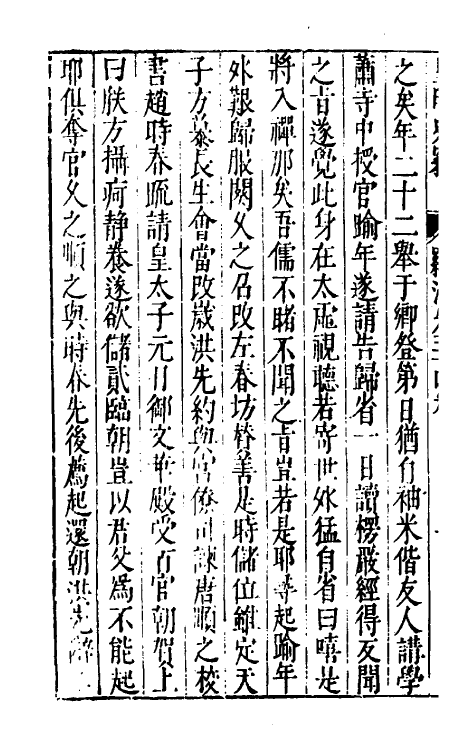 之矣年二十二舉于鄉登第日猶自袖米偕友人講學
蕭寺中授官踰年遂請告歸省一日讀楞嚴經得反聞
之旨遂覺此身在太虛視聽若寄世外猛自省曰嘻是
將入禪那矣吾儒不睹不聞之旨豈若是耶尋起踰年
外艱歸服闋久之召改左春坊贊善是時儲位雖定天
子方慕長生會當改歲洪先約與官僚司諫唐順之校
書趙時春疏請皇太子元日御文華殿受百官朝賀上
曰朕方攝痾靜養遂欲儲貳臨朝豈以君父為不能起
耶俱奪官久之順之與時春先後薦起還朝洪先辭